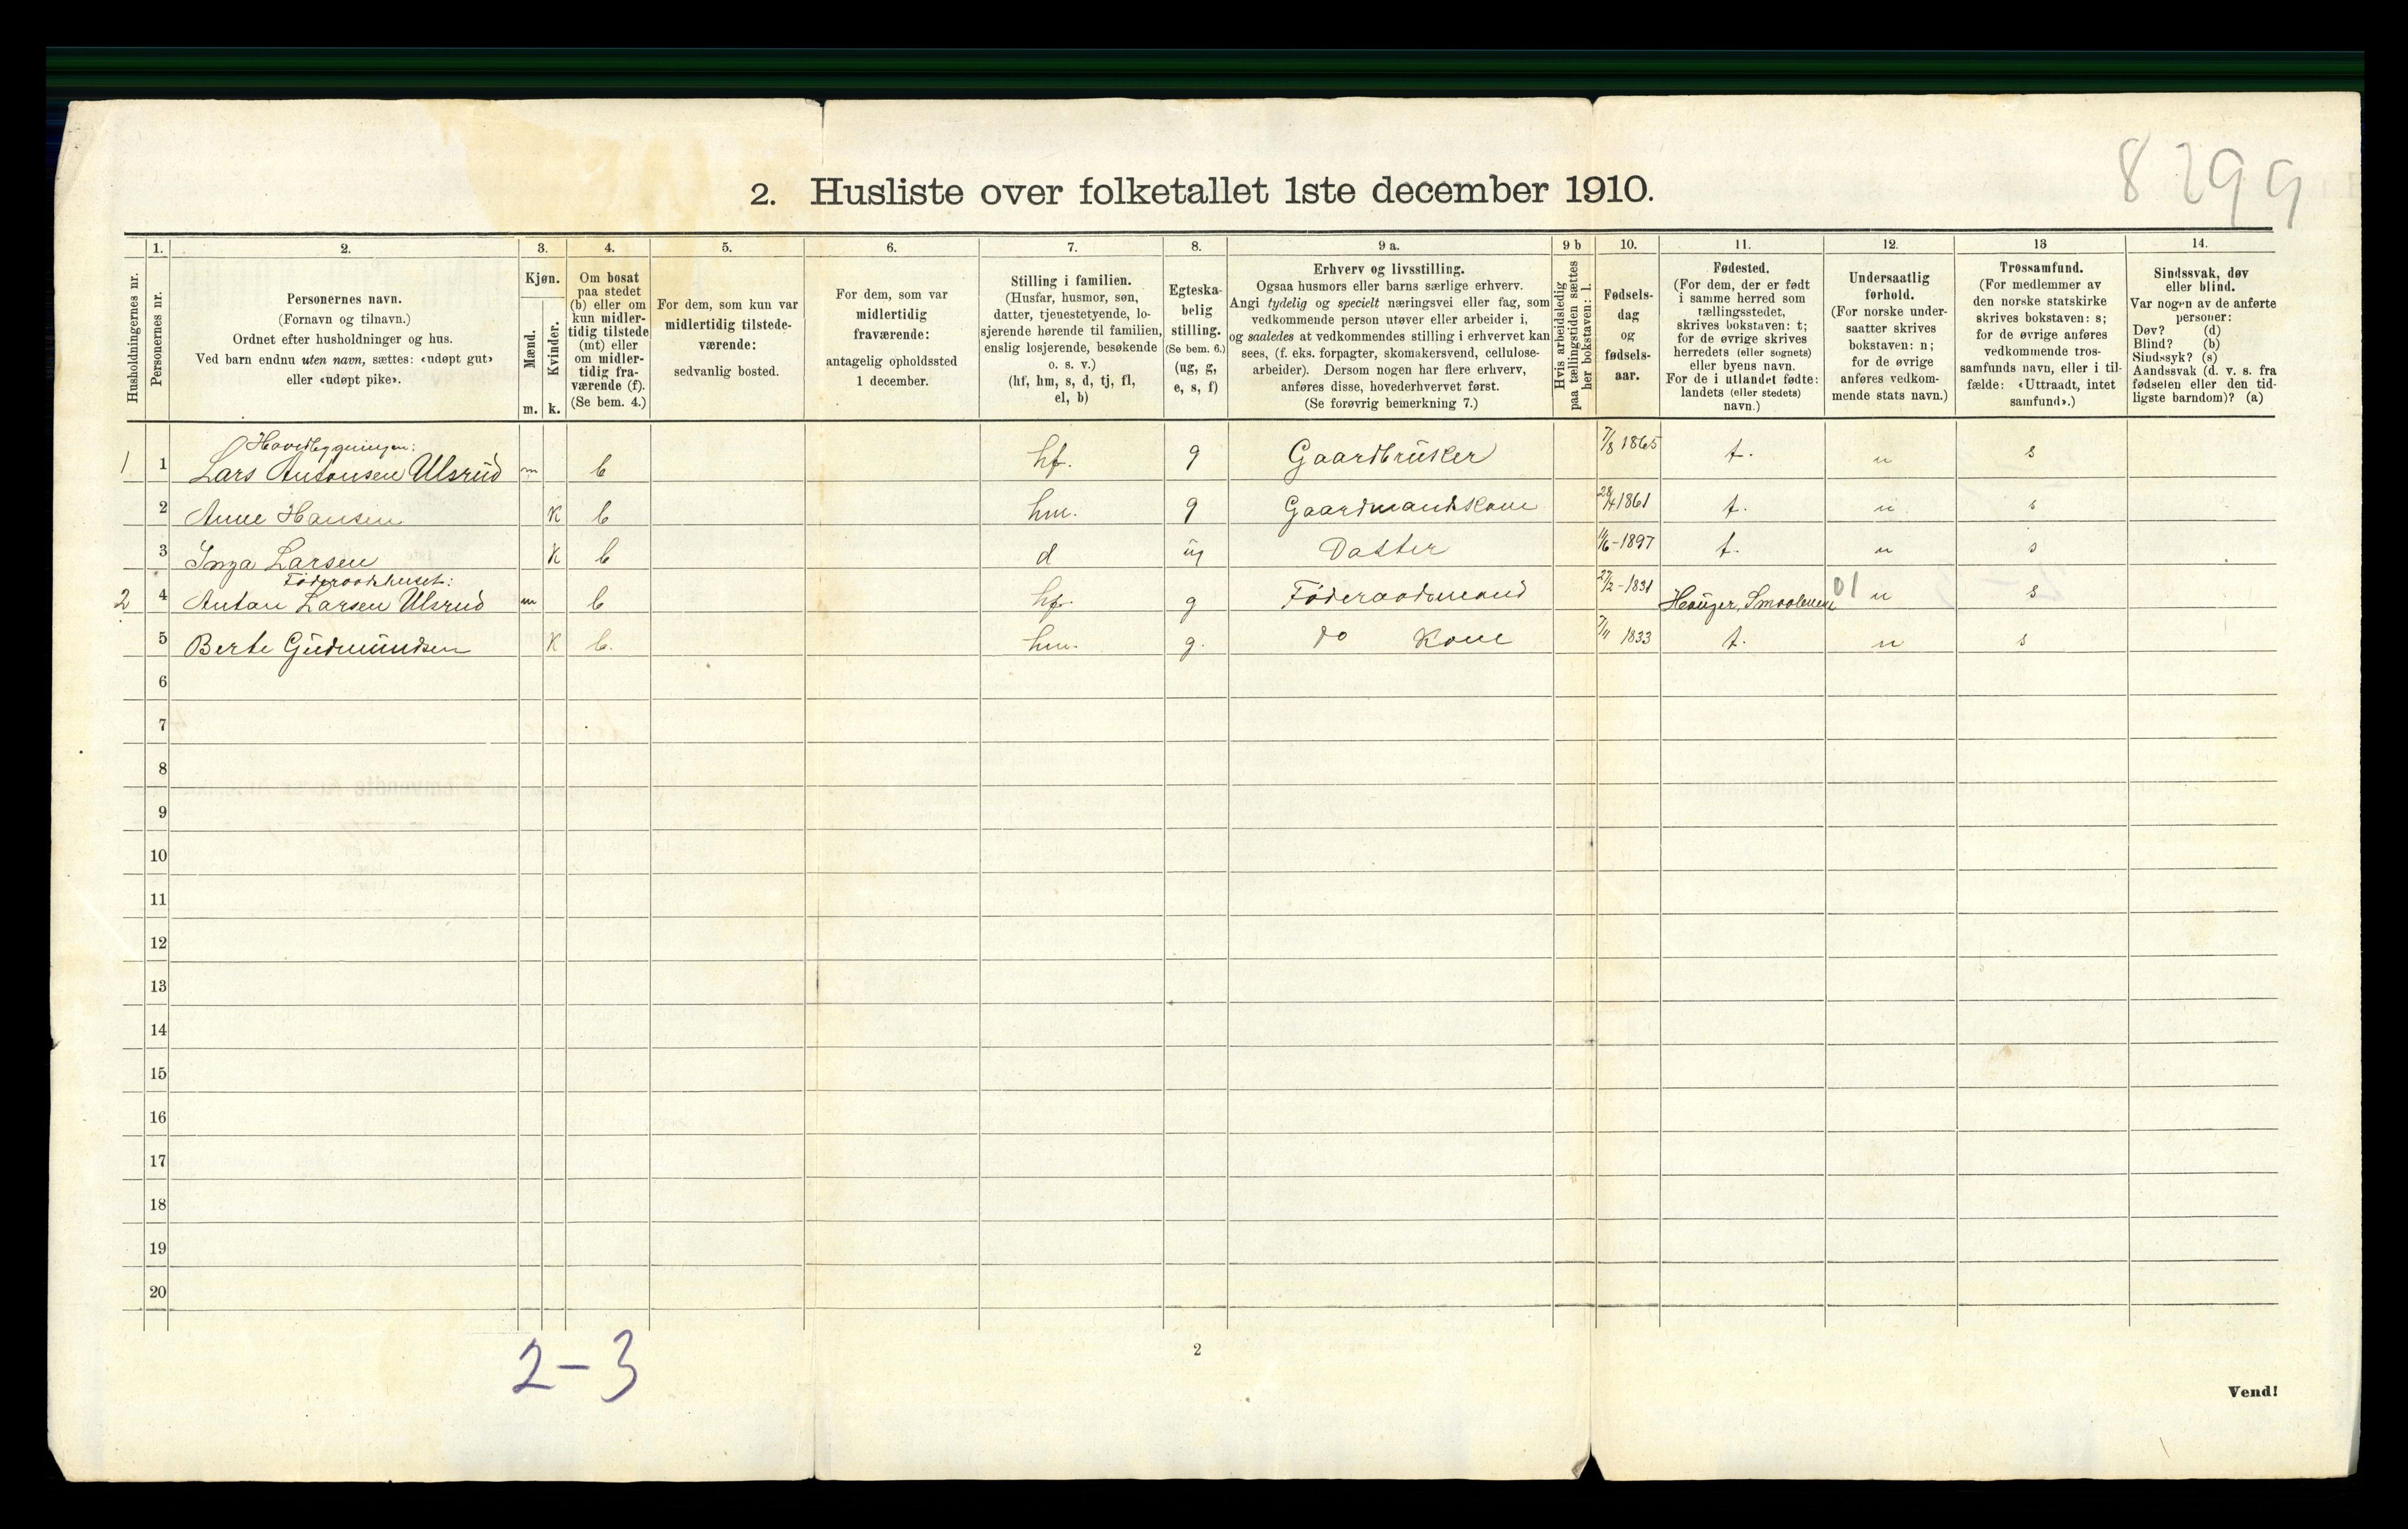 8299
2. Husliste over folketallet 1ste december 1910.
Husholdningernes nr.
1.
Personernes nr.
2.
Personernes navn.
(Fornavn og tilnavn.)
Ordnet efter husholdninger og hus.
Ved barn endnu uten navn, sættes: «udøpt gut»
eller «udøpt pike».
3.
Kjøn.
Mænd.
Kvinder.
m. k.
4.
Om bosat
paa stedet
(b) eller om
kun midler-
tidig tilstede
(mt) eller
om midler-
tidig fra-
værende (f).
(Se bem. 4.)
5.
For dem, som kun var
midlertidig tilstede-
værende:
sedvanlig bosted.
6.
For dem, som var
midlertidig
fraværende:
antagelig opholdssted
1 december.
7.
Stilling i familien.
(Husfar, husmor, søn,
datter, tjenestetyende, lo-
sjerende hørende til familien,
enslig losjerende, besøkende
o. s. v.)
(hf, hm, s, d, tj, fl,
el, b)
8.
Egteska-
belig
stilling.
(Se bem. 6.)
(ug, g,
e, s, f)
9 a.
Erhverv og livsstilling.
Ogsaa husmors eller barns særlige erhverv.
Angi tydelig og specielt næringsvei eller fag, som
vedkommende person utøver eller arbeider i,
og saaledes at vedkommendes stilling i erhvervet kan
sees, (f. eks. forpagter, skomakersvend, cellulose-
arbeider). Dersom nogen har flere erhverv,
anføres disse, hovederhvervet først.
(Se forøvrig bemerkning 7.)
9 b
Hvis arbeidsledig
paa tællingstiden sættes
her bokstaven: l.
10.
Fødsels-
dag
og
fødsels-
aar.
11.
Fødested.
(For dem, der er født
i samme herred som
tællingsstedet,
skrives bokstaven: t;
for de øvrige skrives
herredets (eller sognets)
eller byens navn.
For de i utlandet fødte:
landets (eller stedets)
navn.)
12.
Undersaatlig
forhold.
(For norske under-
saatter skrives
bokstaven: n;
for de øvrige
anføres vedkom-
mende stats navn.)
13
Trossamfund.
(For medlemmer av
den norske statskirke
skrives bokstaven: s;
for de øvrige anføres
vedkommende tros-
samfunds navn, eller i til-
fælde: «Uttraadt, intet
samfund».)
14.
Sindssvak, døv
eller blind.
Var nogen av de anførte
personer:
Døv? (d)
Blind? (b)
Sindssyk? (s)
Aandssvak (d. v. s. fra
fødselen eller den tid-
ligste barndom)? (a)
Hovedbygningen:
1 1 Lars Antonsen Ulsrud m b hf. g Gaardbruker 7/8 1865 t. n s
2 Anne Hansen k b hm. g Gaardmandskone 28/4 1861 t. n s
3 Inga Larsen k b d ug Datter 11/6-1897 t. n s
Föderaadshuset:
2 4 Anton Larsen Ulsrud m b hf. g Föderaadsmand 27/2-1831 Hauger, Smaalenene 01 n s
5 Berte Gudmundsen k b. hm. g. do Kone 7/11 1833 t. n s
6
7
8
9
10
11
12
13
14
15
16
17
18
19
20
2-3
2
Vend!